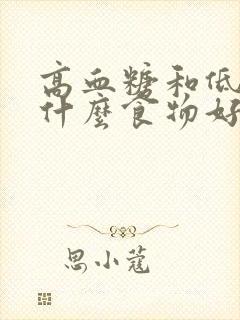 高血糖和低
什麼食物好
思小蔻